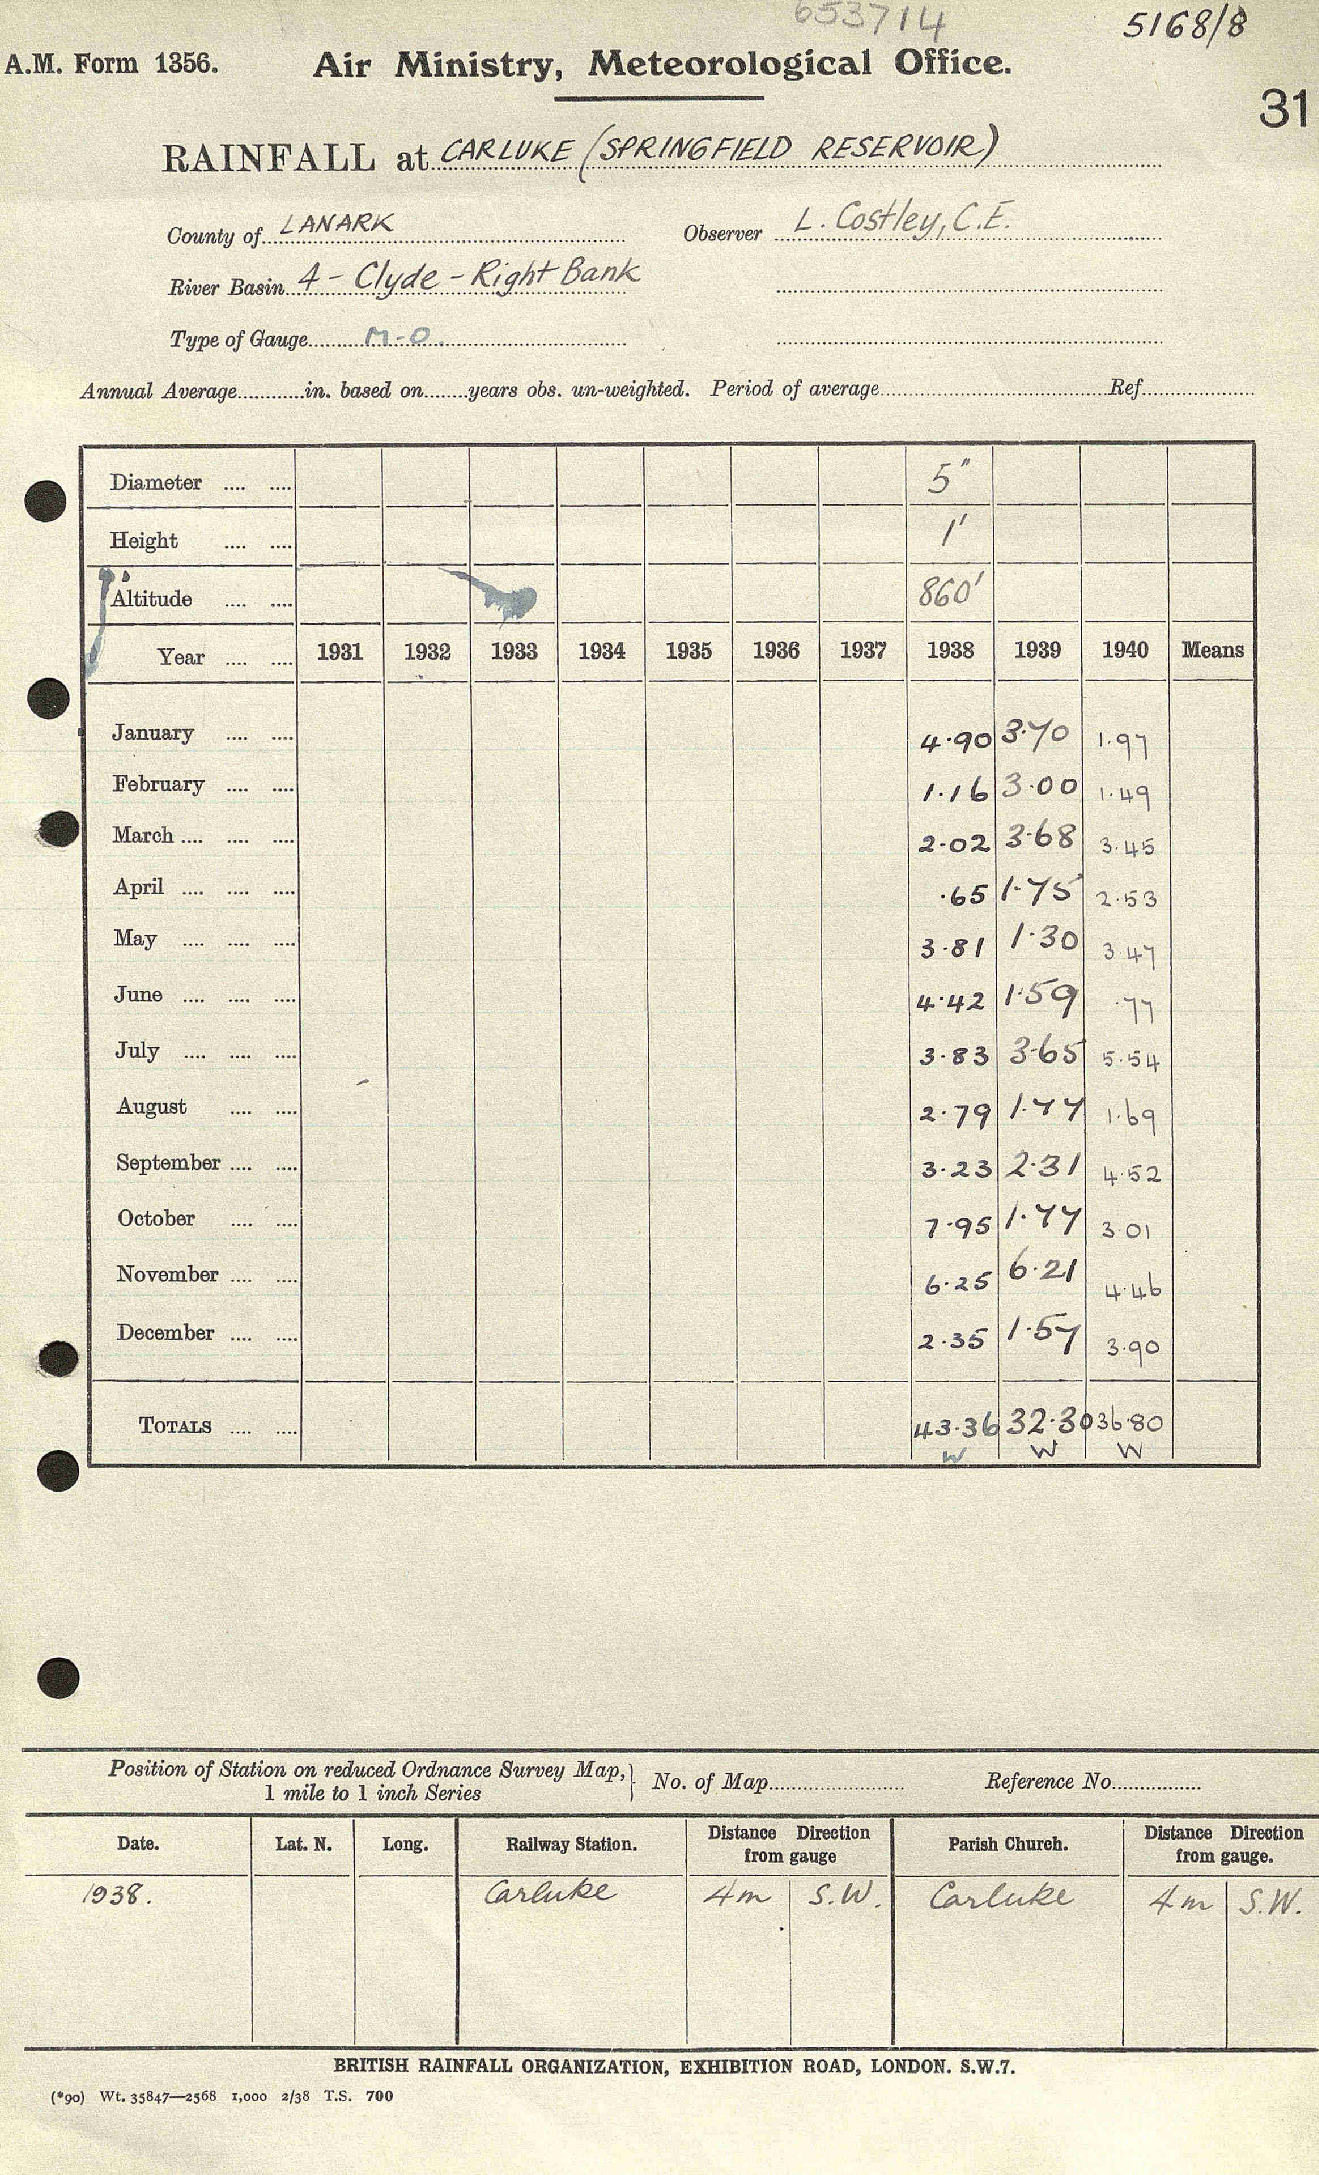 653714
5168/8
A.M. Form 1356. Air Ministry, Meteorological Office.
31
RAINFALL at CARLUKE (SPRINGFIELD RESERVOIR)
County of LANARK Observer L. Costley, C.E.
River Basin 4 - Clyde - Right Bank
Type of Gauge M-O.
Annual Average in. based on years obs. un-weighted. Period of average Ref.
Diameter 5"
Height 1'
Altitude 860'
Year 1931 1932 1933 1934 1935 1936 1937 1938 1939 1940 Means
January 4.90 3.70 1.97
February 1.16 3.00 1.49
March 2.02 3.68 3.45
April .65 1.75 2.53
May 3.81 1.30 3.47
June 4.42 1.59 .77
July 3.83 3.65 5.54
August 2.79 1.77 1.69
September 3.23 2.31 4.52
October 7.95 1.77 3.01
November 6.25 6.21 4.46
December 2.35 1.57 3.90
TOTALS 43.36 32.30 36.80
W W W
Position of Station on reduced Ordnance Survey Map,
1 mile to 1 inch Series } No. of Map Reference No.
Date. Lat. N. Long. Railway Station. Distance from gauge Direction Parish Church. Distance from gauge. Direction
1938. Carluke 4m S.W. Carluke 4m S.W.
BRITISH RAINFALL ORGANIZATION, EXHIBITION ROAD, LONDON. S.W.7.
(*90) Wt. 35847—2568 1,000 2/38 T.S. 700